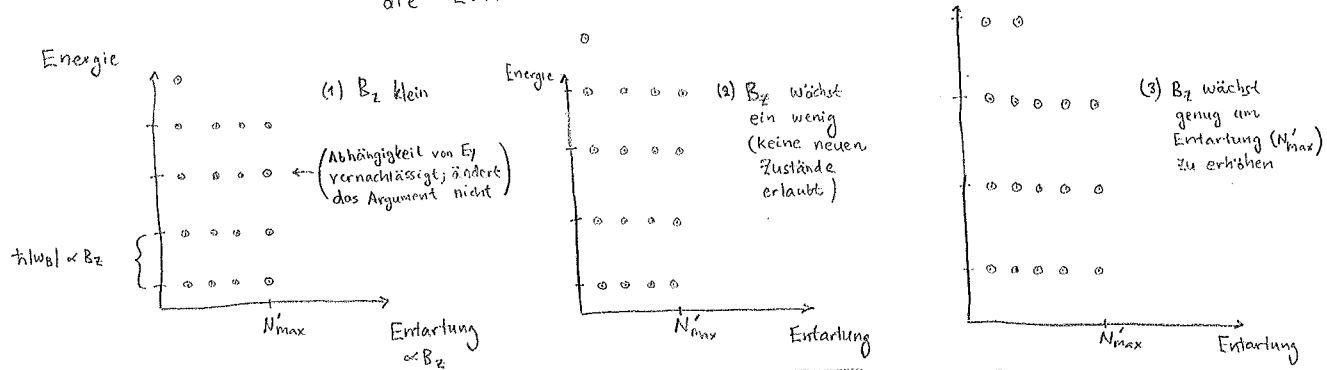 die
Energie
(1) B_z klein
(Abhängigkeit von Ey
vernachlässigt; ändert
das Argument nicht)
ħ|ω_B| ∝ B_z
N'max
Entartung
∝ B_z
Energie
(2) B_z wächst
ein wenig
(keine neuen
Zustände
erlaubt)
N'max
Entartung
(3) B_z wächst
genug um
Entartung (N'max)
zu erhöhen
N'max
Entartung